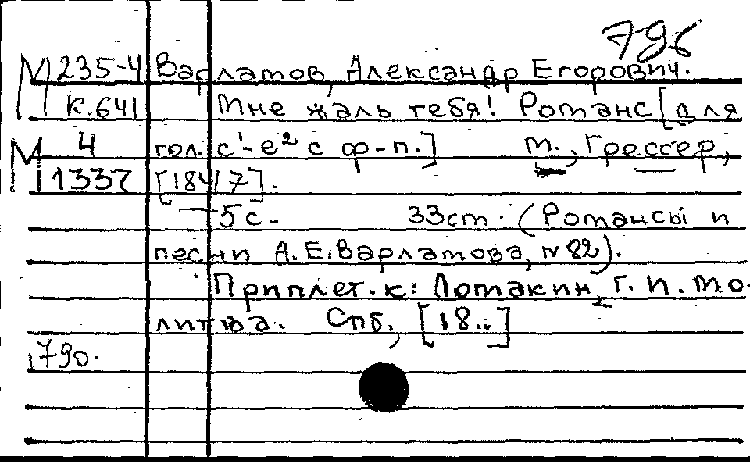 796
М 235-4 Варламов, Александр Егорович.
К.641 Мне жаль тебя! Романс [для
М 4 гол. c¹-e² с ф-п.] М., Грессер,
1337 [1847].
5 с. 33 cm. (Романсы и
песни А.Е. Варламова, № 82).
Приплет. к: Ломакин, Г. И. Мо-
литва. Спб., [18..]
1790.